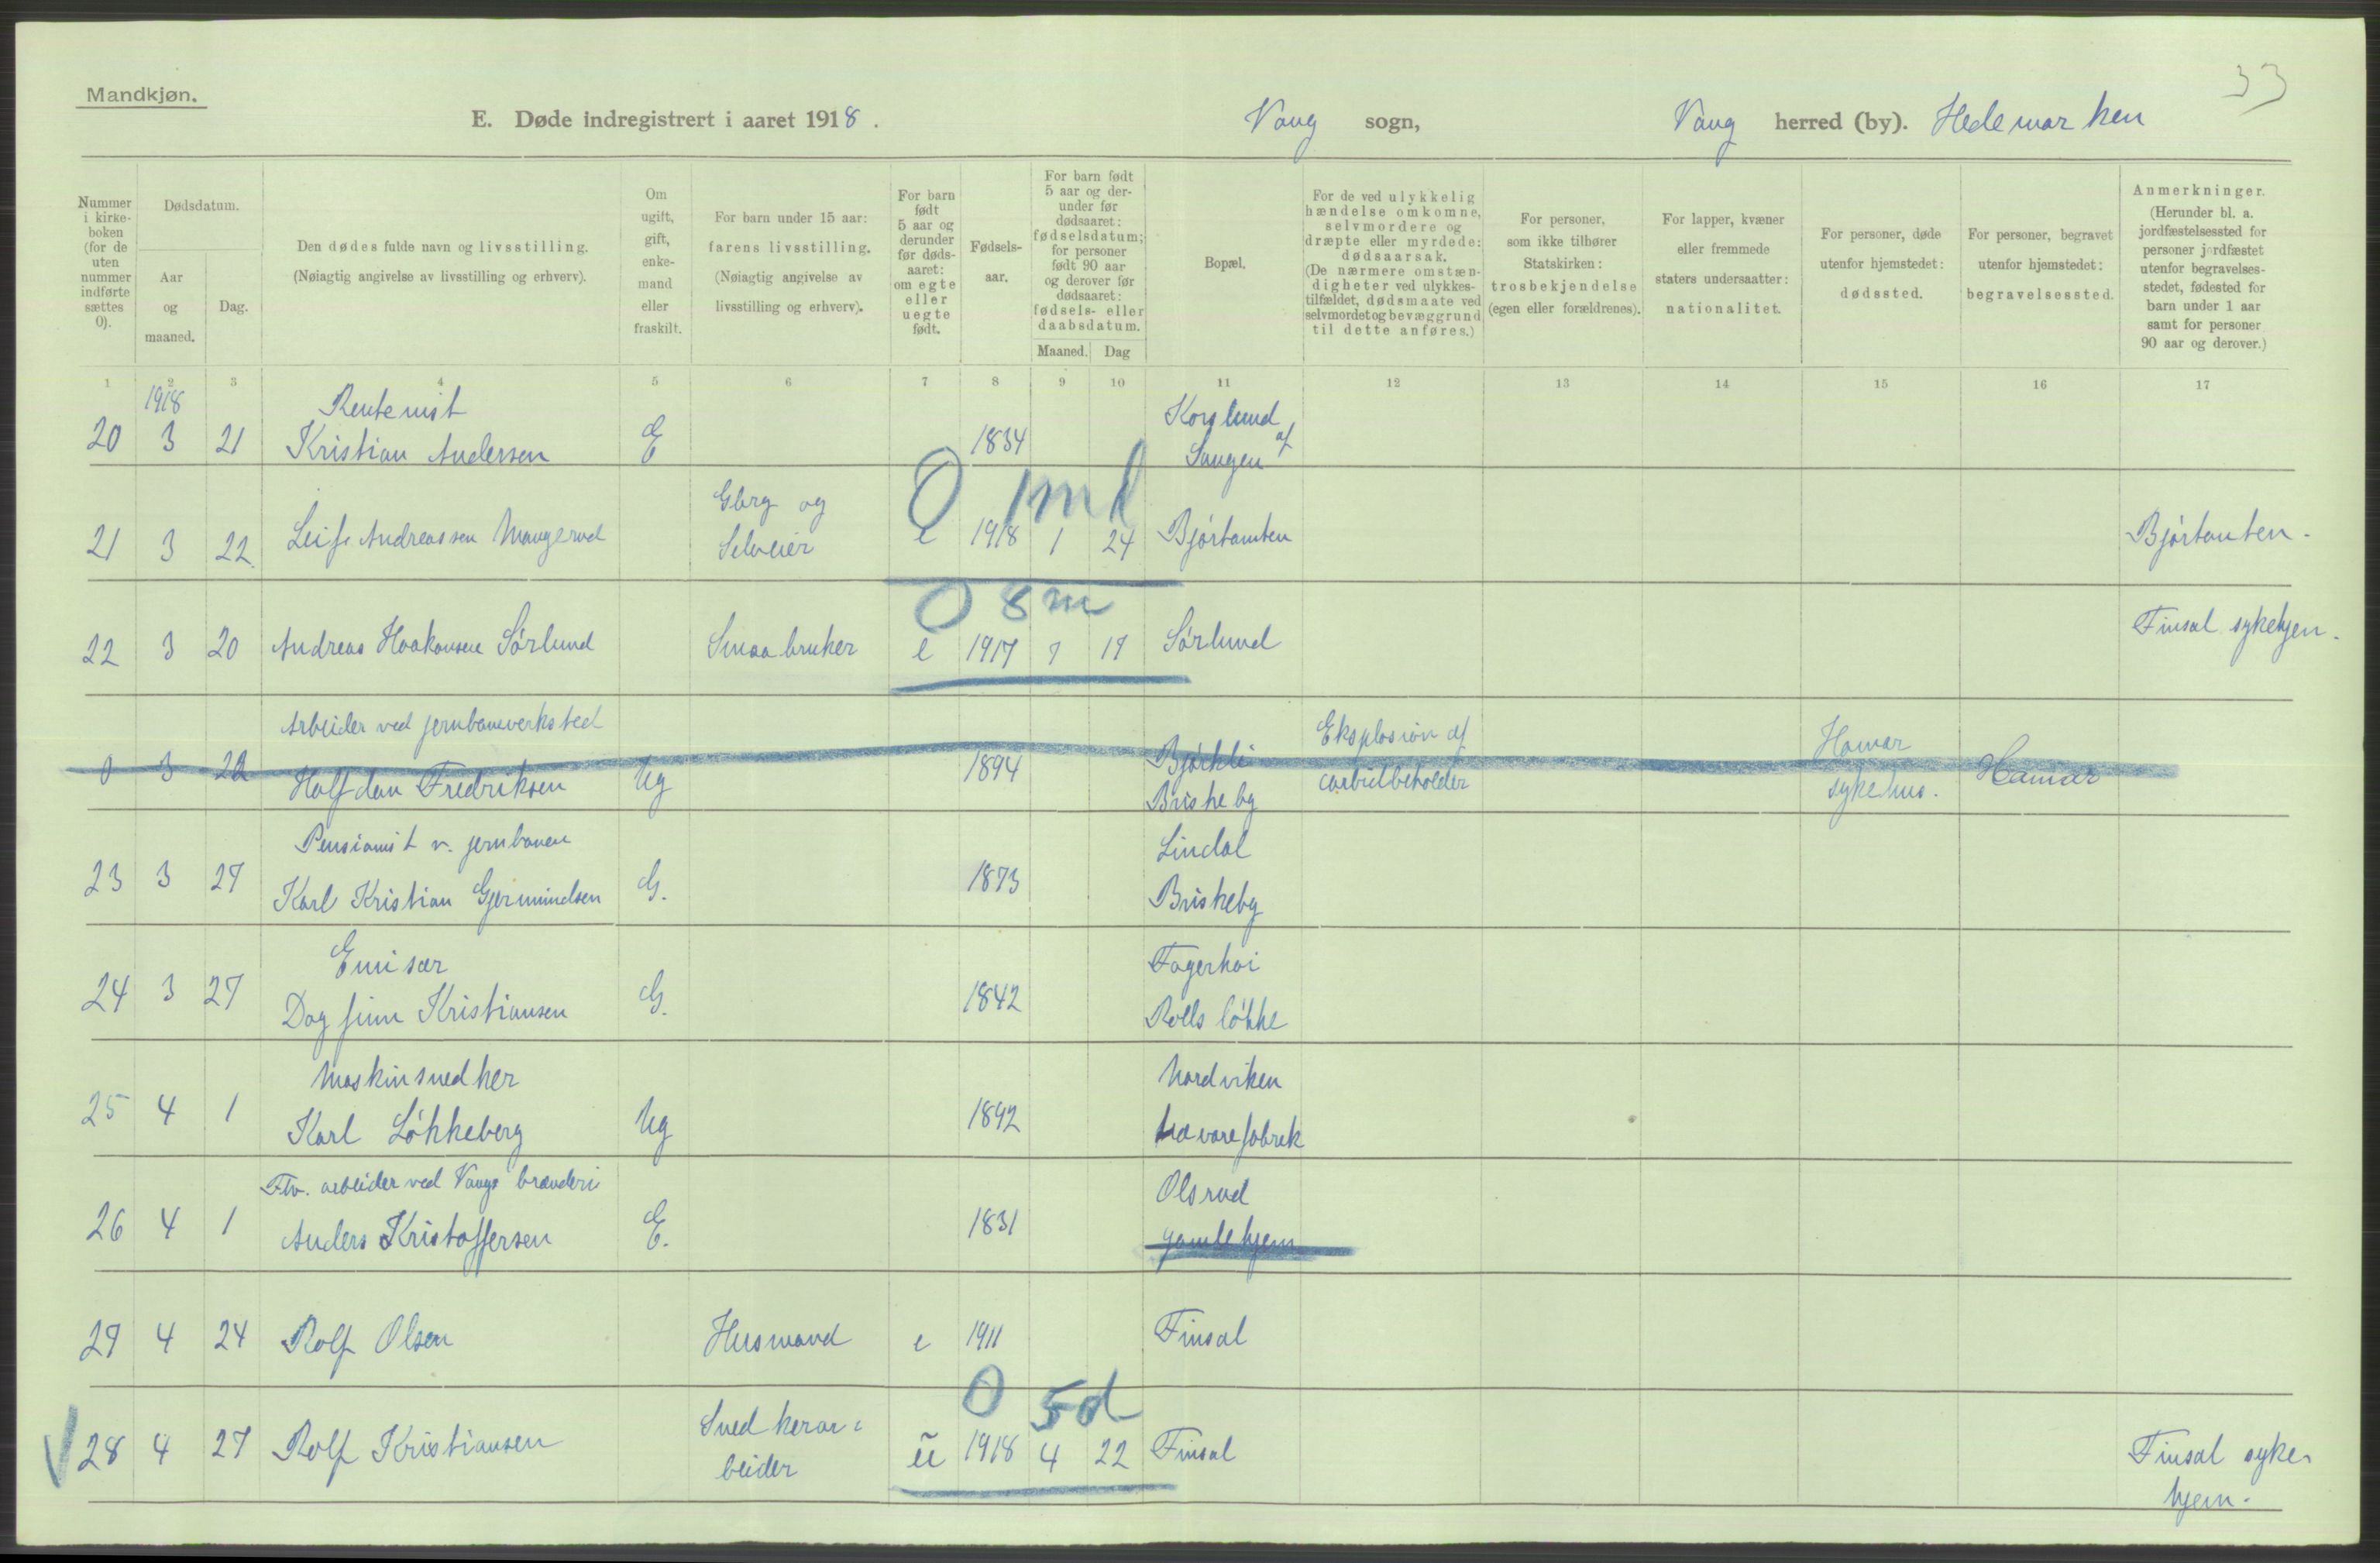 Mandkjøn.
33
E. Døde indregistrert i aaret 1918. Vang sogn, Vang herred (by). Hedemarken
Nummer i kirke-boken (for de uten nummer indførte sættes 0).
Dødsdatum.
Aar og maaned.
Dag.
Den dødes fulde navn og livsstilling.
(Nøiagtig angivelse av livsstilling og erhverv).
Om ugift, gift, enke-mand eller fraskilt.
For barn under 15 aar: farens livsstilling.
(Nøiagtig angivelse av livsstilling og erhverv).
For barn født 5 aar og derunder før døds-aaret: om egte eller uegte født.
Fødsels-aar.
For barn født 5 aar og der-under før dødsaaret: fødselsdatum; for personer født 90 aar og derover før dødsaaret: fødsels- eller daabsdatum.
Maaned. Dag
Bopæl.
For de ved ulykkelig hændelse omkomne, selvmordere og dræpte eller myrdede: dødsaarsak.
(De nærmere omstæn-digheter ved ulykkes-tilfældet, dødsmaate ved selvmordet og bevæggrund til dette anføres.)
For personer, som ikke tilhører Statskirken: trosbekjendelse (egen eller forældrenes).
For lapper, kvæner eller fremmede staters undersaatter: nationalitet.
For personer, døde utenfor hjemstedet: dødssted.
For personer, begravet utenfor hjemstedet: begravelsessted.
Anmerkninger.
(Herunder bl. a. jordfæstelsessted for personer jordfæstet utenfor begravelses-stedet, fødested for barn under 1 aar samt for personer 90 aar og derover.)
1 2 3 4 5 6 7 8 9 10 11 12 13 14 15 16 17
1918 Rentenist Korslund
20 3 21 Kristian Andersen E 1834 af Sangen
Gbrg og 0 1 md
21 3 22 Leif Andreassen Maugerud Selveier e 1918 1 24 Bjørtomten Bjørtomten.
0 8 m
22 3 20 Andreas Haakonsen Sørlund Smaabruker e 1917 7 19 Sørlund Finsal sykehjem.
Arbeider ved jernbaneverksted Bjørkli Eksplosion af Hamar
0 3 22 Halfdan Fredriksen Ug 1894 Briskeby carbidbeholder sykehus. Hamar
Pensionist v. jernbanen Lindal
23 3 27 Karl Kristian Gjermundsen G. 1873 Briskeby
Emisær Fagerhøi
24 3 27 Dagfinn Kristiansen G. 1842 Rolls løkke
Maskinsnedker Nordviken
25 4 1 Karl Løkkeberg Ug 1892 trævarefabrik
Flv. arbeider ved Vangs brænderi Olsrud
26 4 1 Anders Kristoffersen E. 1831 gamlehjem
27 4 24 Rolf Olsen Husmand e 1911 Finsal
0 5 d
Snedkerar-
28 4 27 Rolf Kristiansen beider u 1918 4 22 Finsal Finsal syke-
hjem.